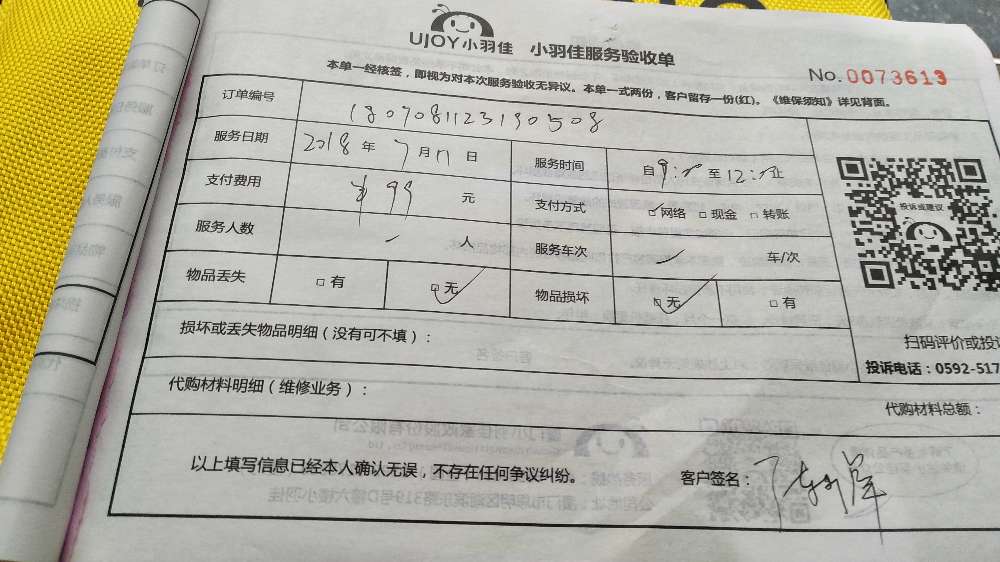 UJOY小羽佳 小羽佳服务验收单
No.0073613
本单一经核签，即视为对本次服务验收无异议。本单一式两份，客户留存一份(红)。《维保须知》详见背面。
订单编号 1807081123190508
服务日期 2018年7月11日 服务时间 自9: 至12: 止
支付费用 ¥99 元 支付方式 网络 现金 转账
服务人数 人 服务车次 车/次
投诉或建议
物品丢失 有 无 物品损坏 无 有
损坏或丢失物品明细（没有可不填）：
扫码评价或投
投诉电话：0592-517
代购材料明细（维修业务）：
代购材料总额：
以上填写信息已经本人确认无误，不存在任何争议纠纷。 客户签名：